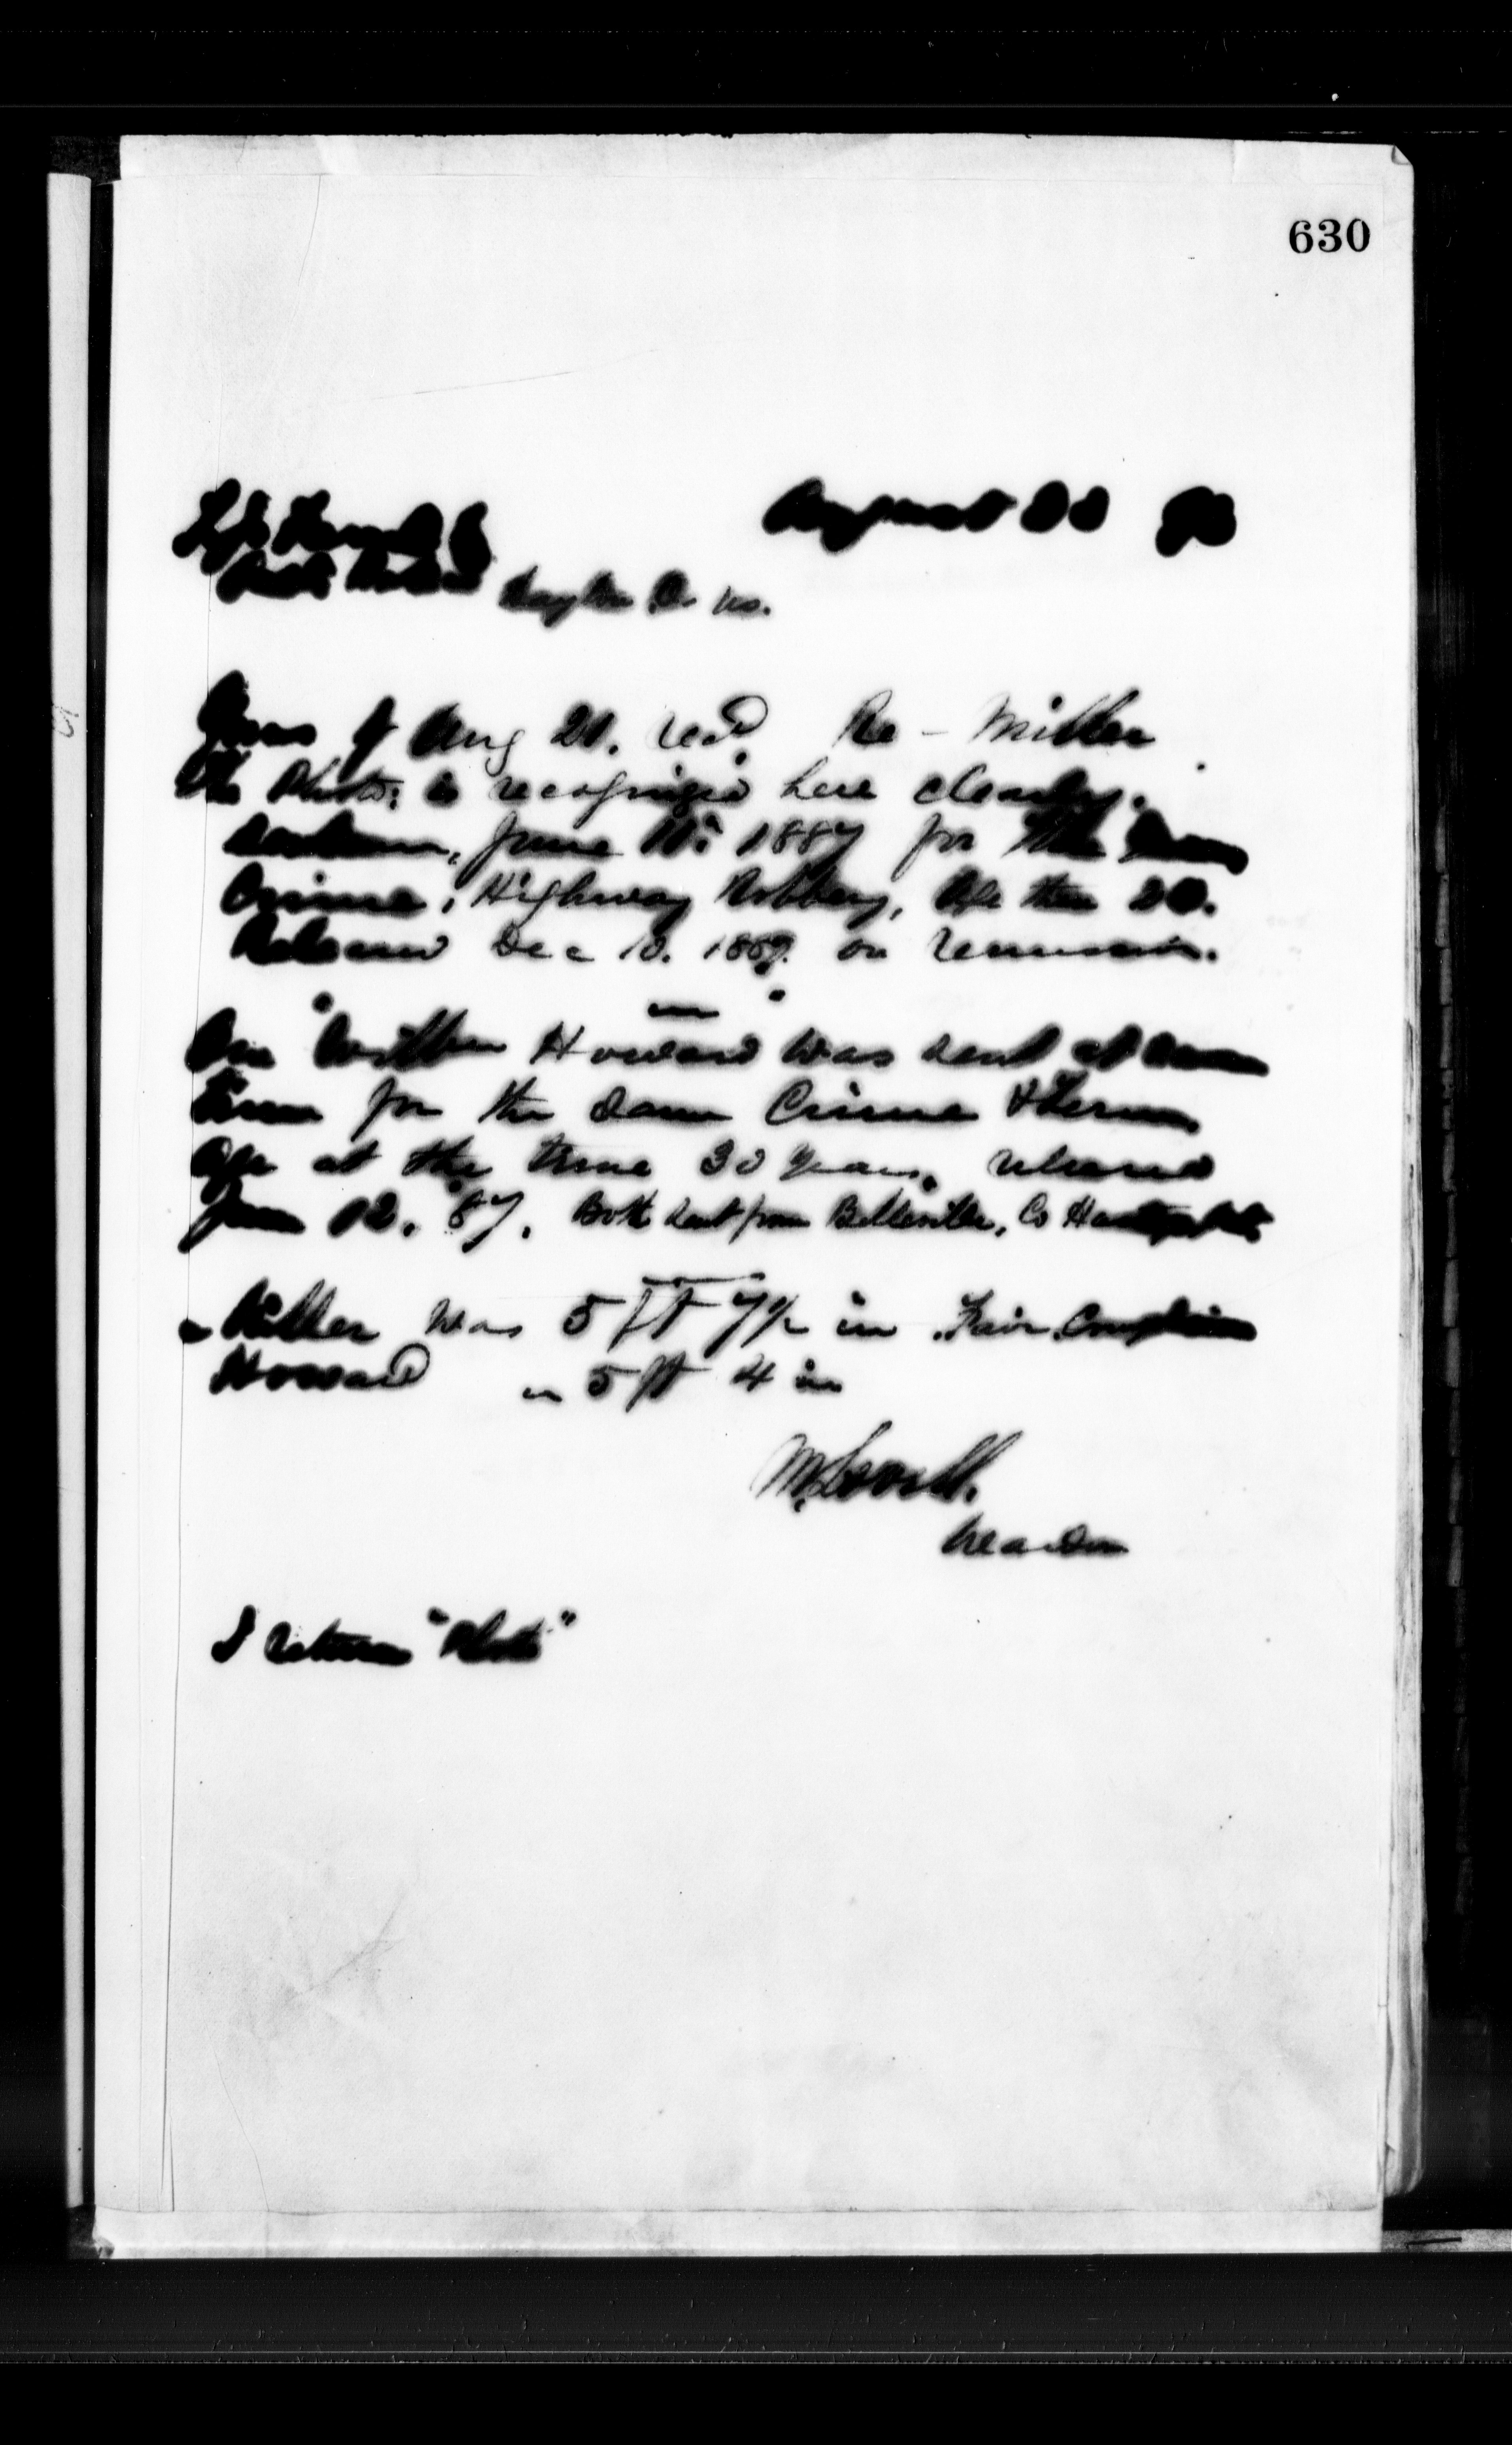 630
August
Dayton O. US.
Yours of Aug 21. recd. Re - Miller
The Photo: is recognized here clearly.
June 1887 for the
Crime: Highway Robbery, Age then 20.
Released Dec 10. 1889. on remission.
One "William Howard" was sent at same
time for the same Crime & term
age at the time 30 years, released
June 12. '87. Both sent from Belleville, Co Hastings
Miller was 5 ft 7½ in Fair Complexion
Howard " 5 ft 4 in
M. Lavell.
Warden
I return "Photo"